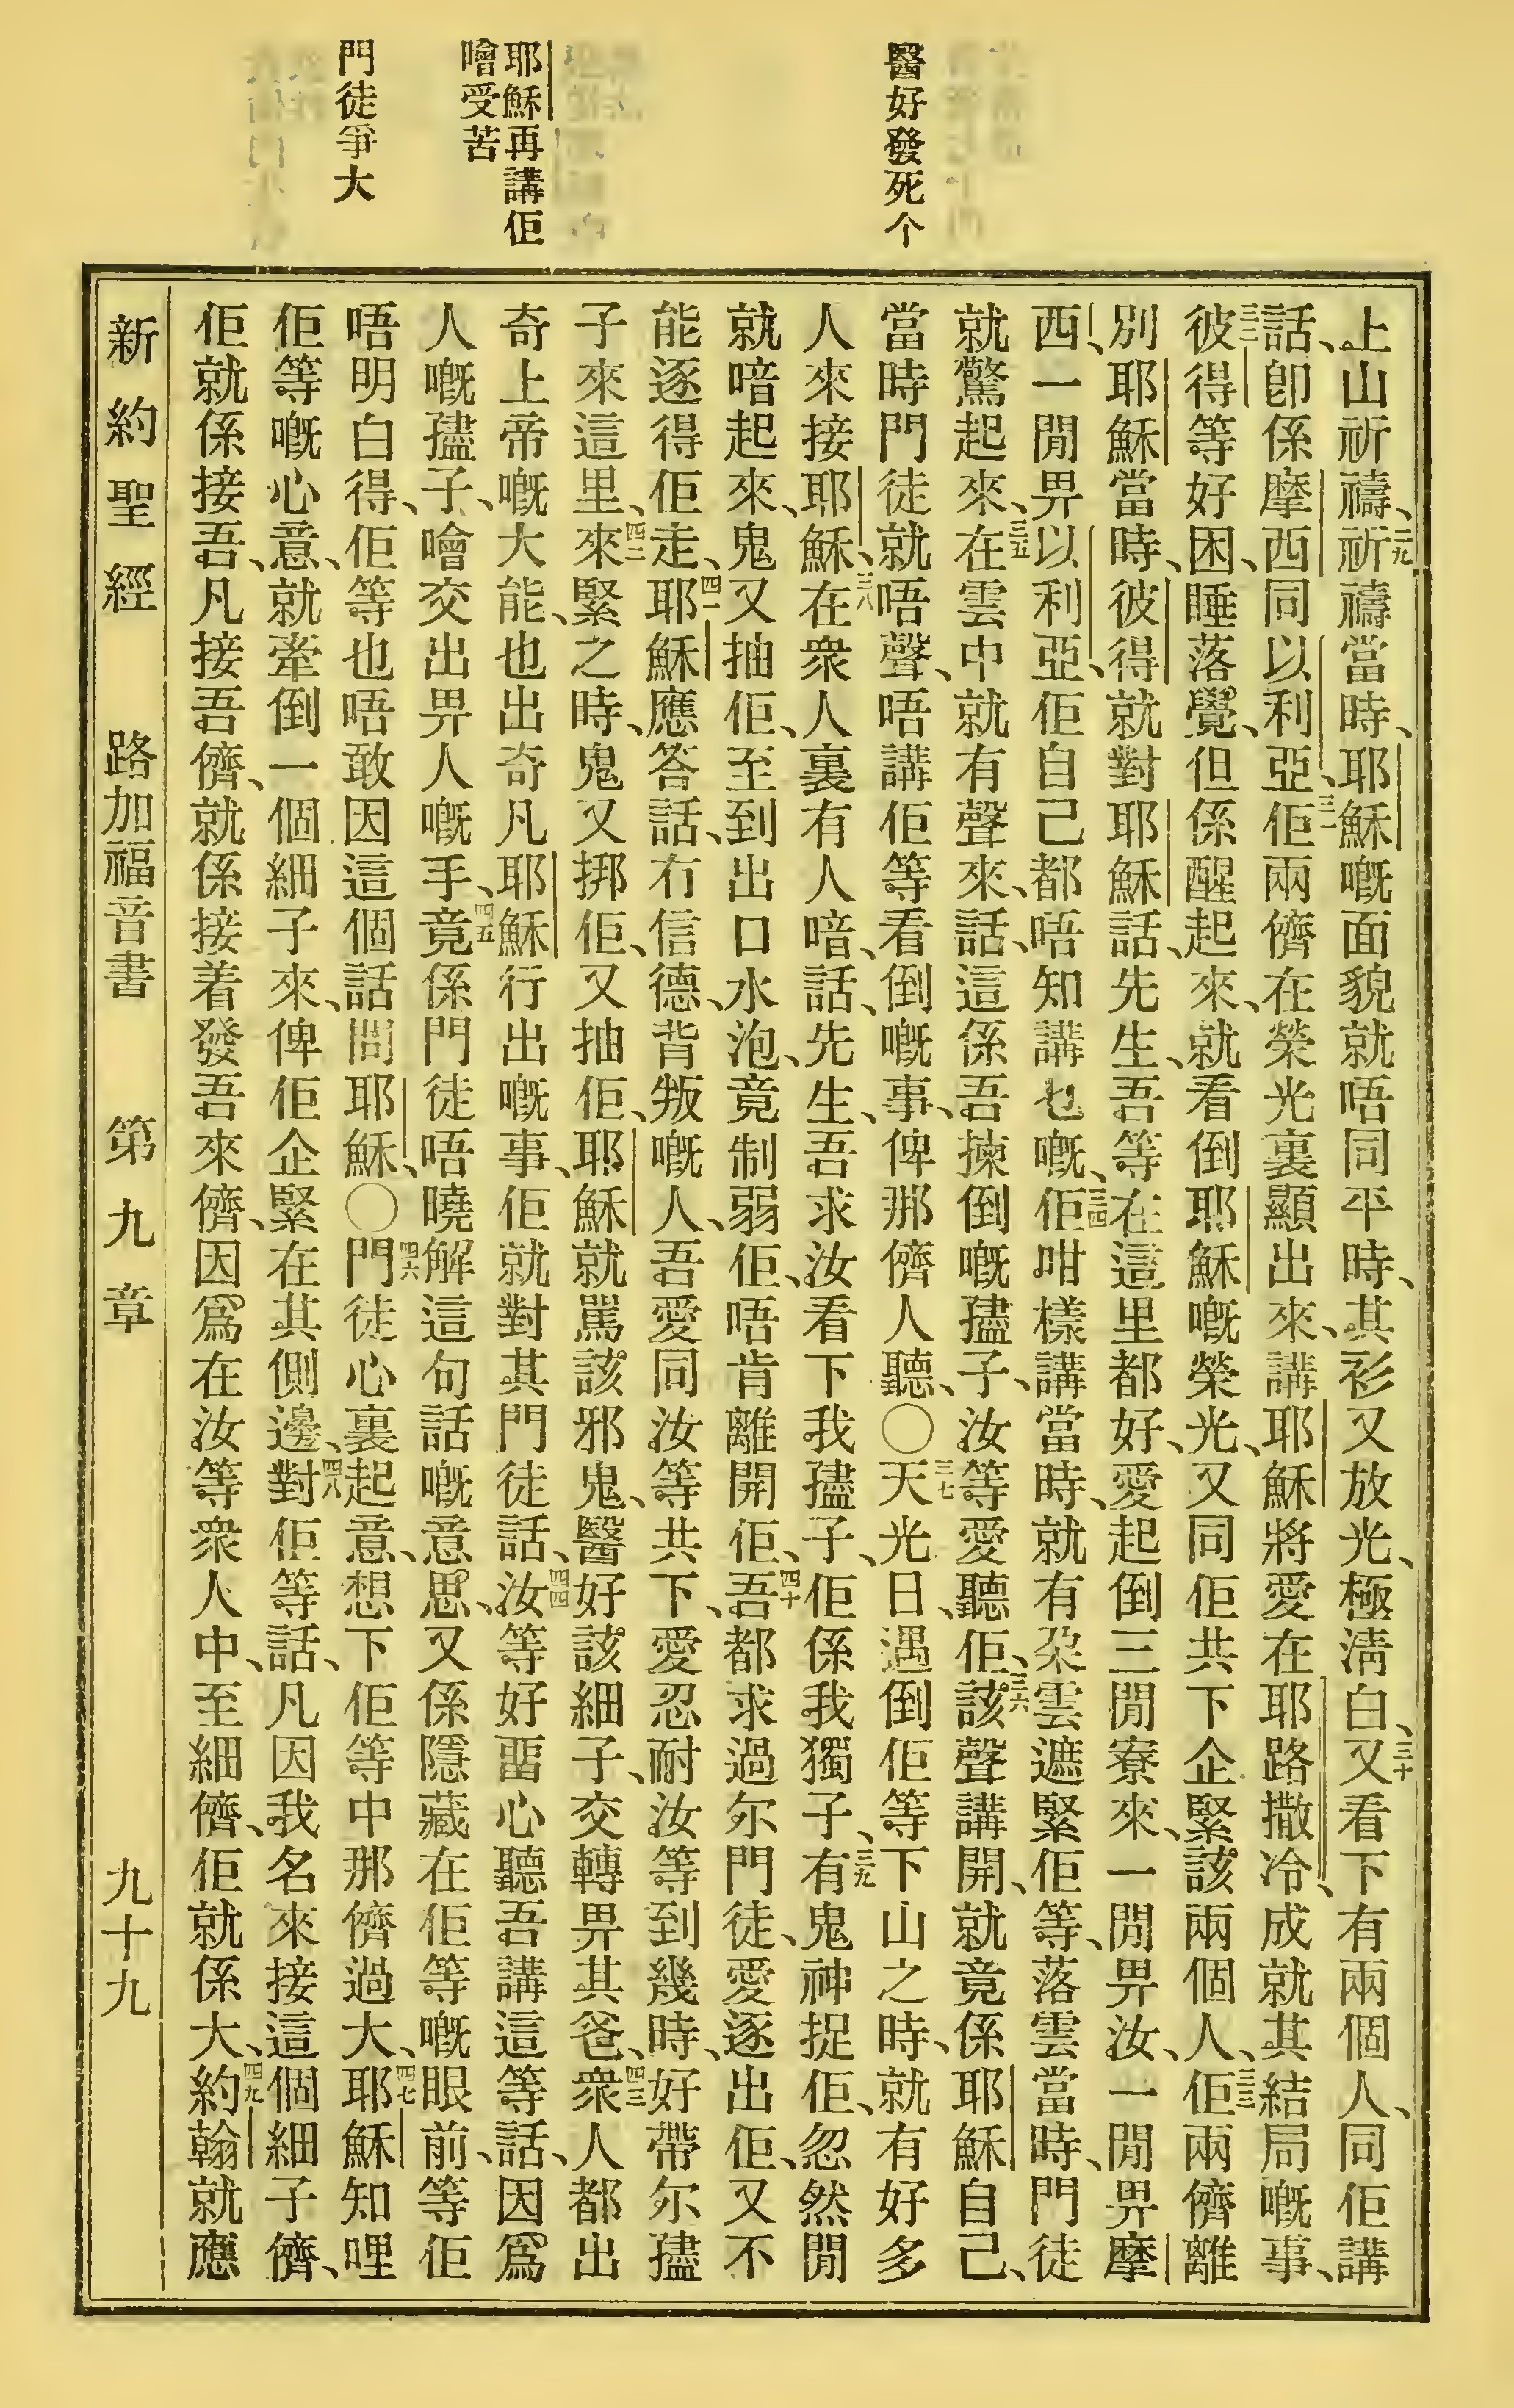 醫好發死个
耶穌再講佢
噲受苦
門徒爭大
上山祈禱、二九祈禱當時、耶穌嘅面貌就唔同平時、其衫又放光、極淸白、三十又看下有兩個人、同佢講
話、卽係摩西同以利亞、三一佢兩儕在榮光裏顯出來、講耶穌將愛在耶路撒冷、成就其結局嘅事、
三二彼得等好困、睡落覺、但係醒起來、就看倒耶穌嘅榮光、又同佢共下企緊該兩個人、三三佢兩儕離
別耶穌當時、彼得就對耶穌話、先生、吾等在這里都好、愛起倒三間寮來、一間畀汝、一間畀摩
西、一間畀以利亞、佢自己都唔知講乜嘅、三四佢咁樣講當時、就有朶雲遮緊佢等、落雲當時、門徒
就驚起來、三五在雲中就有聲來、話、這係吾揀倒嘅孻子、汝等愛聽佢、三六該聲講開、就竟係耶穌自己、
當時門徒就唔聲、唔講佢等看倒嘅事、俾那儕人聽、〇三七天光日、遇倒佢等下山之時、就有好多
人來接耶穌、三八在衆人裏有人喑、話、先生、吾求汝看下我孻子、佢係我獨子、三九有鬼神捉佢、忽然間
就喑起來、鬼又抽佢、至到出口水泡、竟制弱佢、唔肯離開佢、四十吾都求過尔門徒、愛逐出佢、又不
能逐得佢走、四一耶穌應答話、冇信德、背叛嘅人、吾愛同汝等共下、愛忍耐汝等到幾時、好帶尔孻
子來這里、四二來緊之時、鬼又挷佢、又抽佢、耶穌就駡該邪鬼、醫好該細子、交轉畀其爸、四三衆人都出
奇上帝嘅大能、也出奇凡耶穌行出嘅事、佢就對其門徒話、四四汝等好畱心聽吾講這等話、因爲
人嘅孻子、噲交出畀人嘅手、四五竟係門徒唔曉解這句話嘅意思、又係隱藏在佢等嘅眼前、等佢
唔明白得、佢等也唔敢因這個話問耶穌、〇四六門徒心裏起意、想下佢等中那儕過大、四七耶穌知哩
佢等嘅心意、就牽倒一個細子來、俾佢企緊在其側邊、四八對佢等話、凡因我名來接這個細子儕、
佢就係接吾、凡接吾儕、就係接着發吾來儕、因爲在汝等衆人中、至細儕、佢就係大、四九約翰就應
新約聖經　路加福音書　第九章　九十九